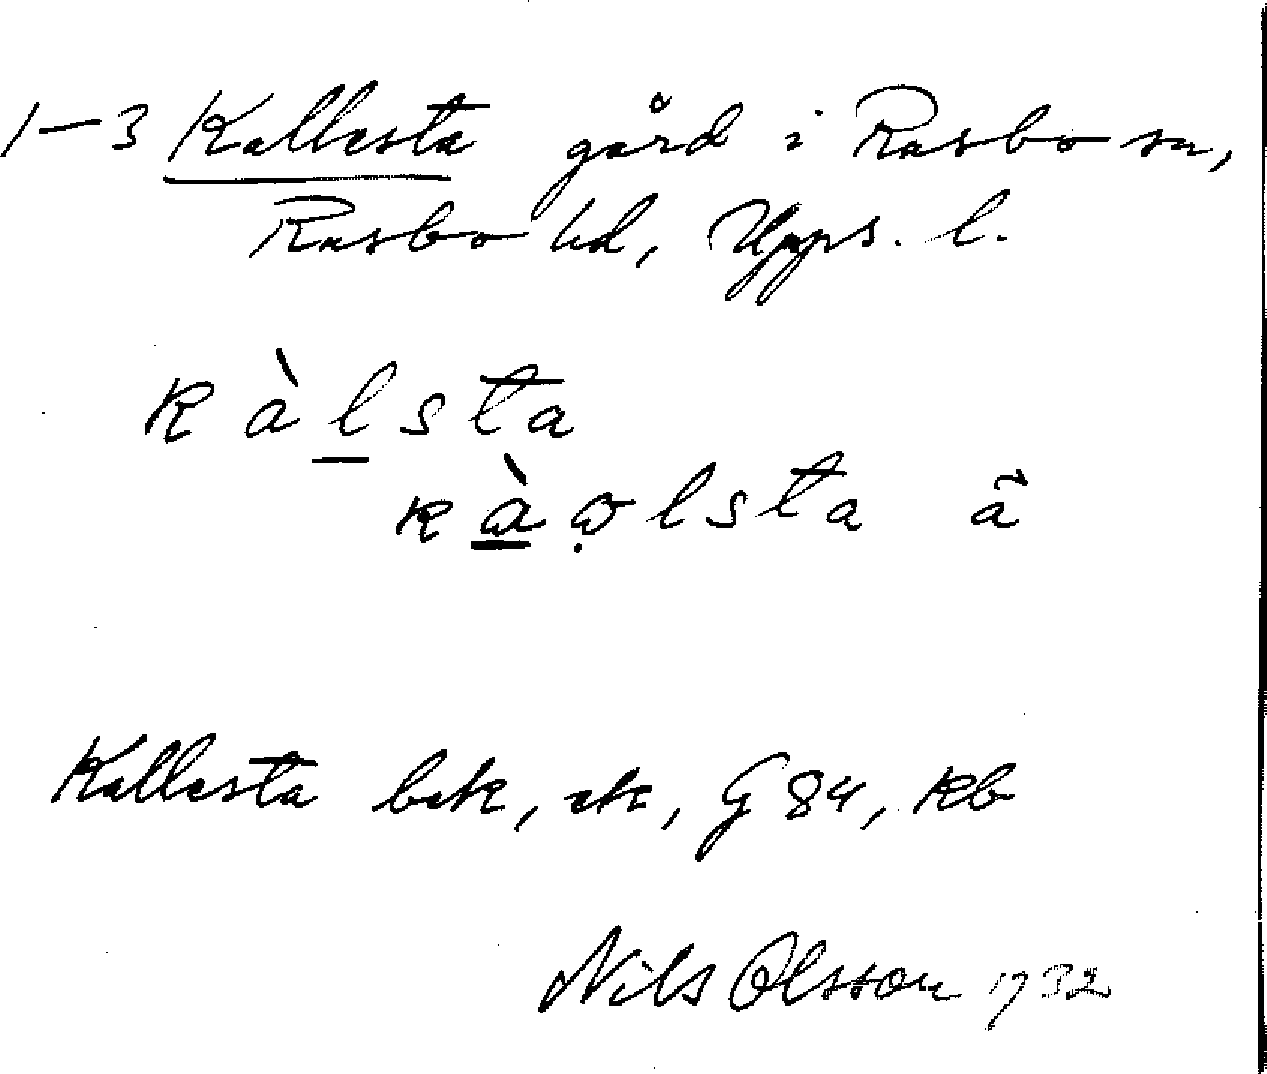 1-3 Kallesta gård i Rasbo sn,
Rasbo hd, Upps. l.
kàlsta
kàωlsta ã
Kallesta bek, ek, G 84, kb
Nils Olsson 1932